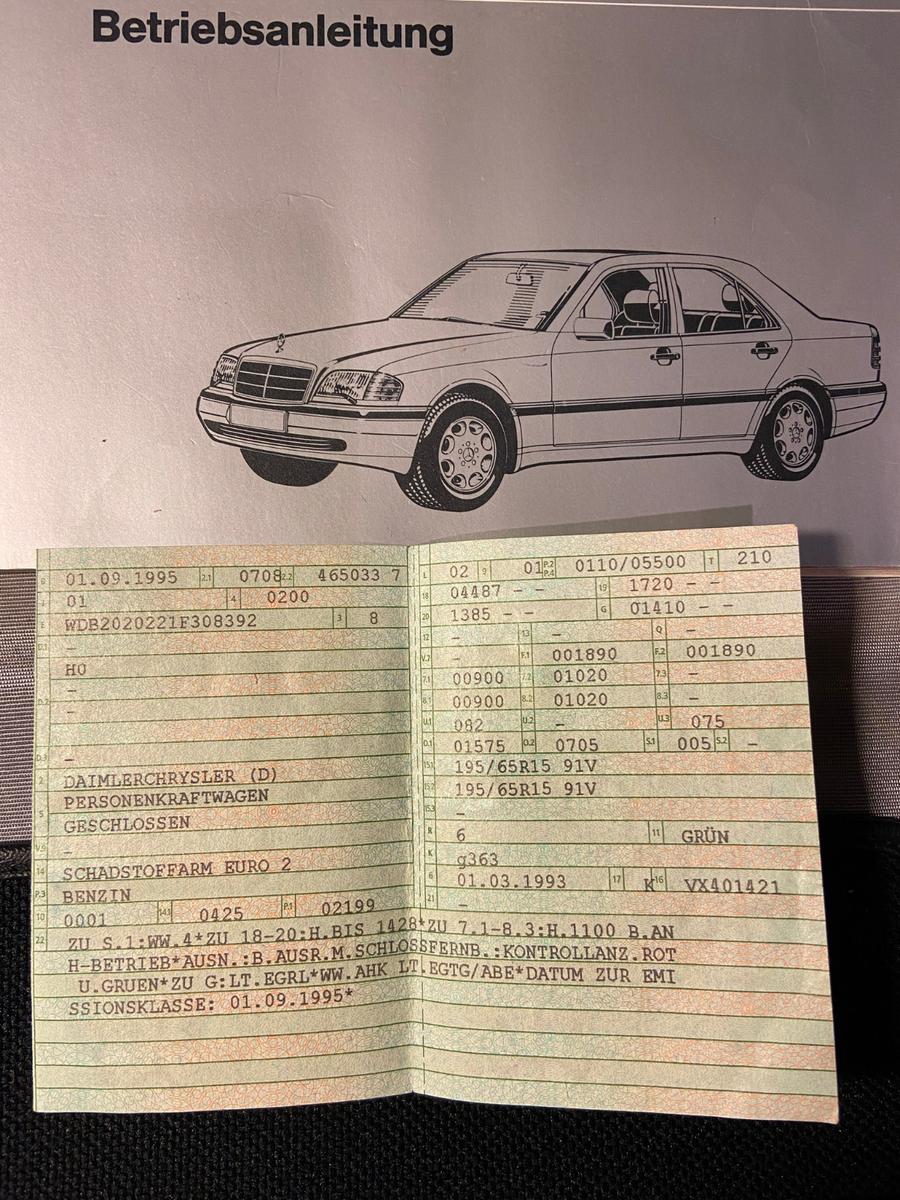 Betriebsanleitung
B 01.09.1995 2.1 0708 2.2 465033 7
J 01 4 0200
E WDB2020221F308392 3 8
D.1 –
H0
–
D.2 –
D.3 –
2 DAIMLERCHRYSLER (D)
PERSONENKRAFTWAGEN
5 GESCHLOSSEN
V.9 –
14 SCHADSTOFFARM EURO 2
P.3 BENZIN
10 0001 14.1 0425 P.1 02199
L 02 9 01 P.2 P.4 0110/05500 T 210
18 04487 – – 19 1720 – –
20 1385 – – G 01410 – –
12 – 13 – Q –
V.7 – F.1 001890 F.2 001890
7.1 00900 7.2 01020 7.3 –
8.1 00900 8.2 01020 8.3 –
U.1 082 U.2 – U.3 075
O.1 01575 O.2 0705 S.1 005 S.2 –
15.1 195/65R15 91V
15.2 195/65R15 91V
15.3 –
R 6 11 GRÜN
K g363
6 01.03.1993 17 K 16 VX401421
21 –
22 ZU S.1:WW.4*ZU 18-20:H.BIS 1428*ZU 7.1-8.3:H.1100 B.AN
H-BETRIEB*AUSN.:B.AUSR.M.SCHLOSSFERNB.:KONTROLLANZ.ROT
U.GRUEN*ZU G:LT.EGRL*WW.AHK LT.EGTG/ABE*DATUM ZUR EMI
SSIONSKLASSE: 01.09.1995*